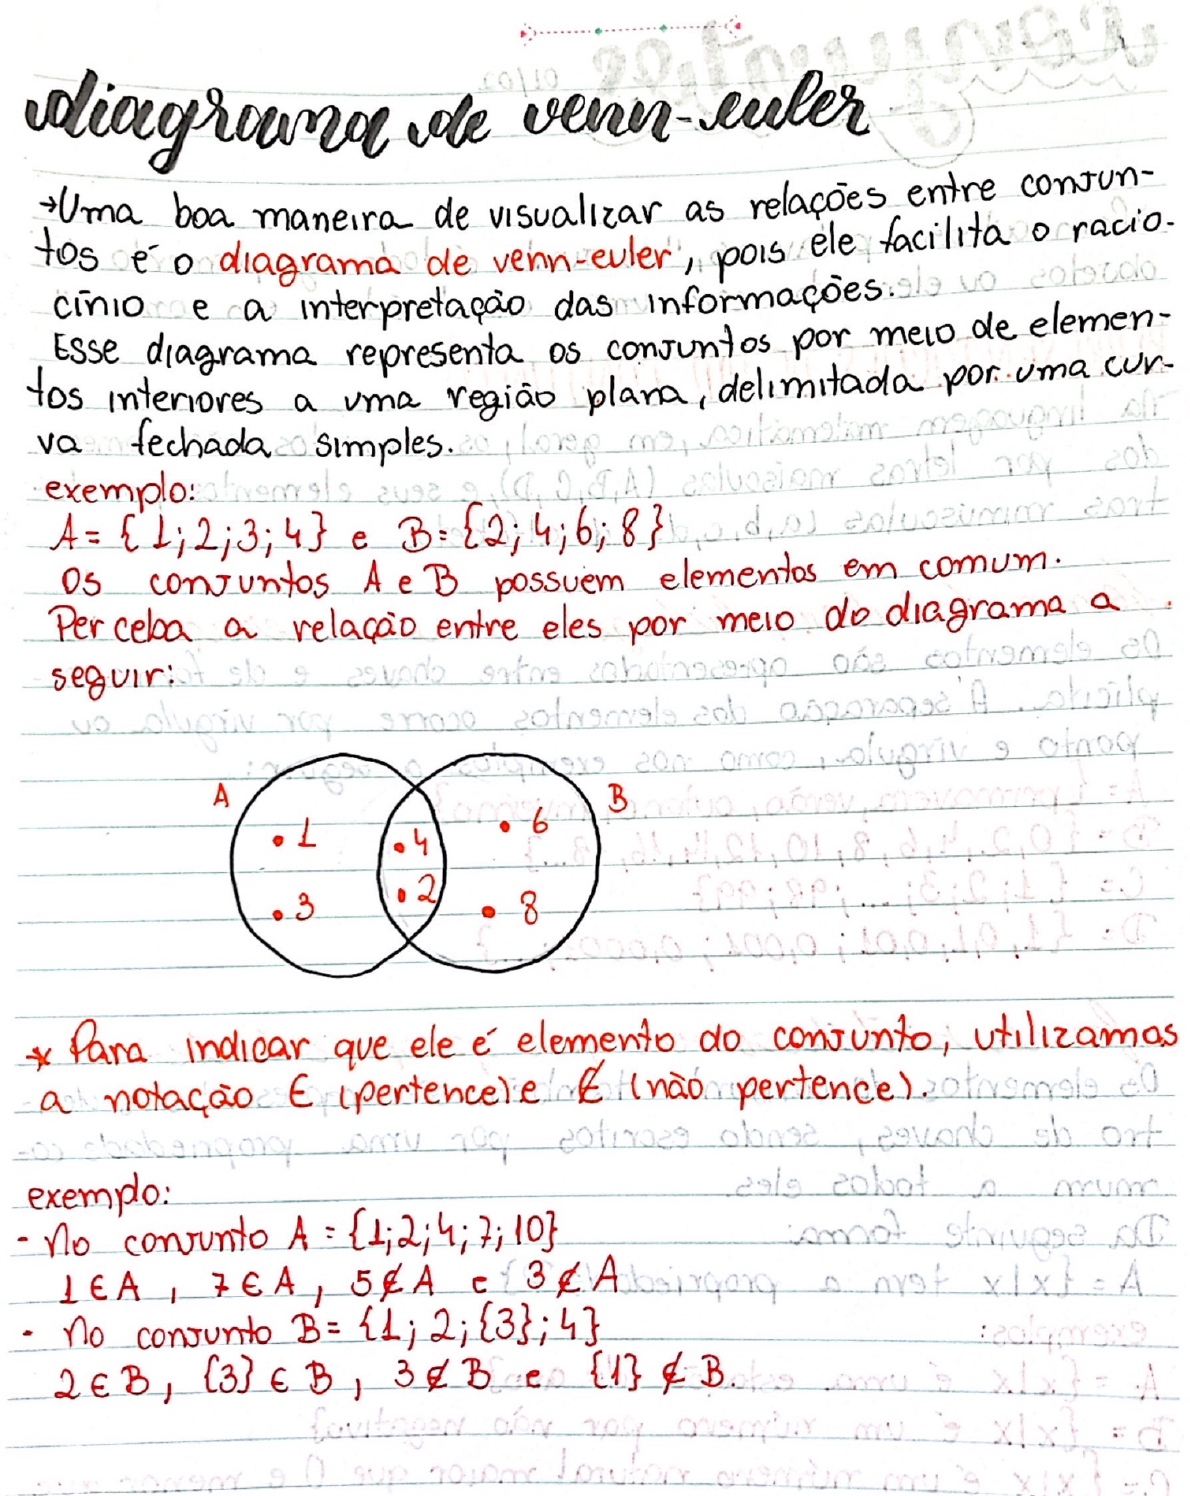 diagrama de venn-euler
→Uma boa maneira de visualizar as relações entre conjun-
tos é o diagrama de venn-euler, pois ele facilita o racio-
cínio e a interpretação das informações.
Esse diagrama representa os conjuntos por meio de elemen-
tos interiores a uma região plana, delimitada por uma cur-
va fechada simples.
exemplo:
A = {1; 2; 3; 4} e B = {2; 4; 6; 8}
Os conjuntos A e B possuem elementos em comum.
Perceba a relação entre eles por meio do diagrama a
seguir:
A B
• 1 • 4 • 6
• 3 • 2 • 8
* Para indicar que ele é elemento do conjunto, utilizamos
a notação ∈ (pertence) e ∉ (não pertence).
exemplo:
- No conjunto A = {1; 2; 4; 7; 10}
1 ∈ A, 7 ∈ A, 5 ∉ A e 3 ∉ A
- No conjunto B = {1; 2; {3}; 4}
2 ∈ B, {3} ∈ B, 3 ∉ B e {1} ∉ B.